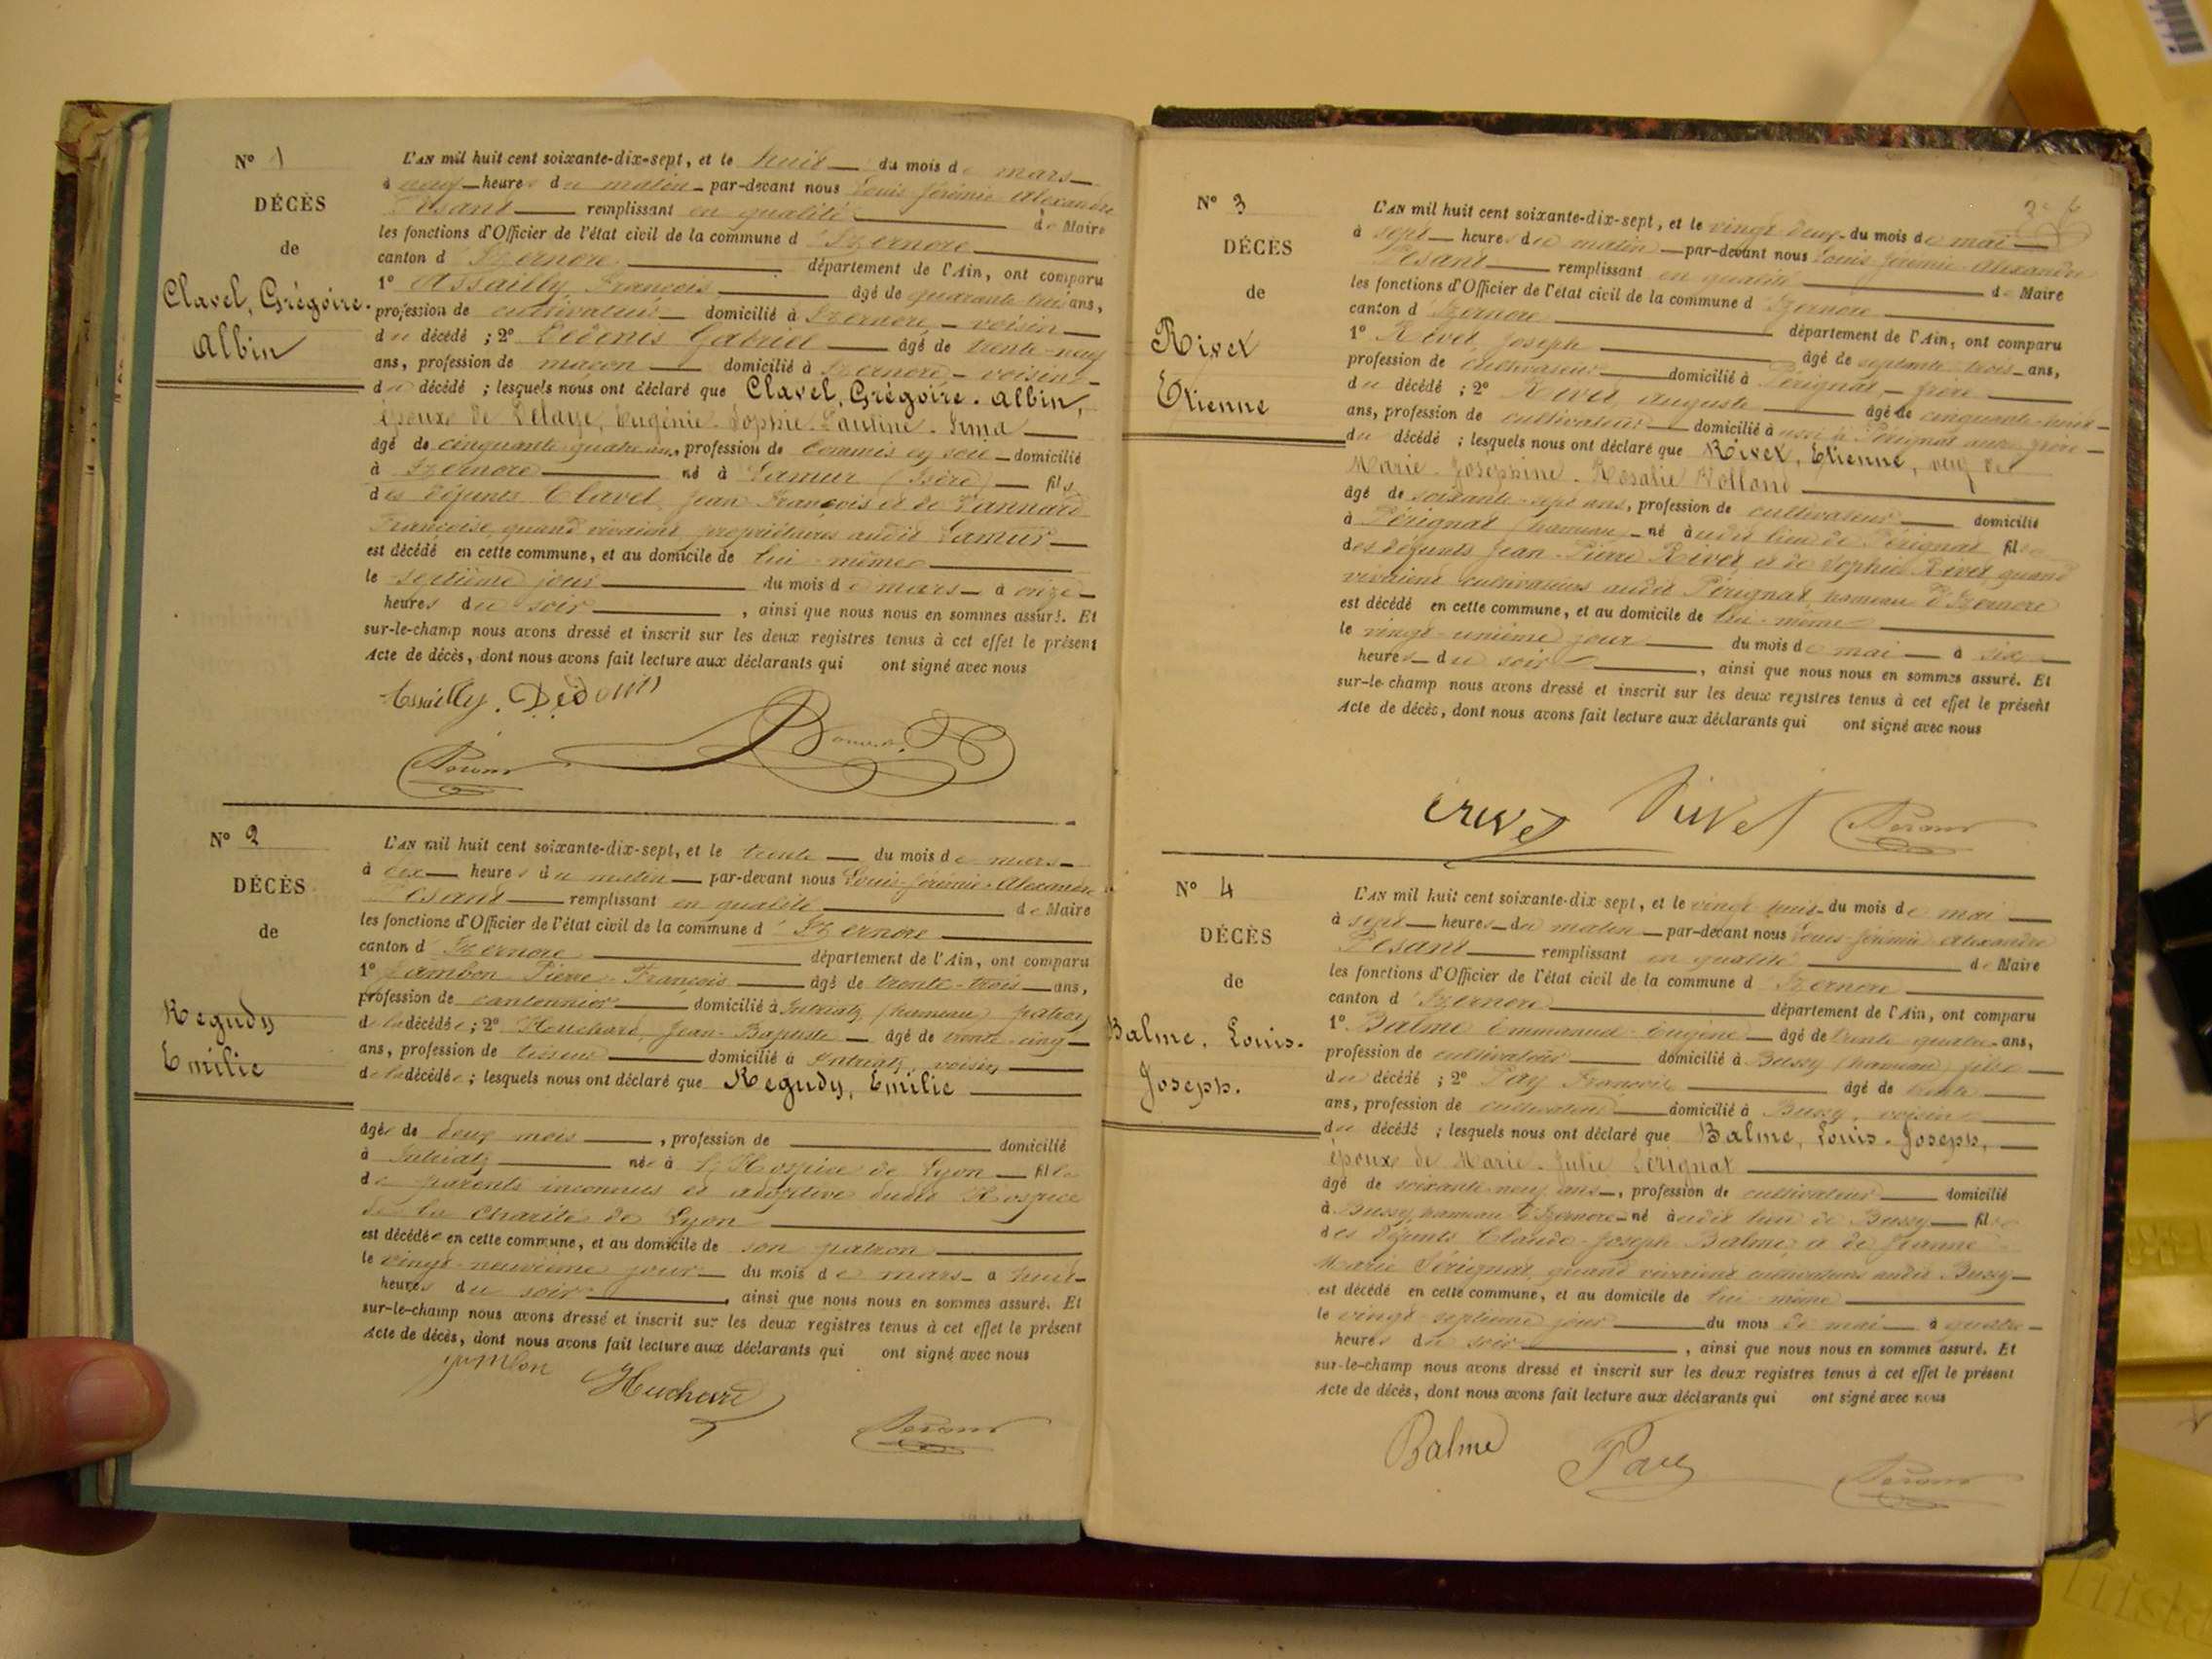 N° 1
DÉCÈS
de
Clavel, Grégoire.
Albin
L'AN mil huit cent soixante-dix-sept, et le huit du mois de mars
à neuf heures du matin par-devant nous Louis Jérémie Alexandre
Pesant remplissant en qualité de Maire
les fonctions d'Officier de l'état civil de la commune d'Izernore
canton d'Izernore département de l'Ain, ont comparu
1° Assailly François âgé de quarante trois ans,
profession de cultivateur domicilié à Izernore, voisin
du décédé ; 2° Dedenis Gabriel âgé de trente-neuf
ans, profession de maçon domicilié à Izernore, voisin
du décédé ; lesquels nous ont déclaré que Clavel, Grégoire. Albin,
époux de Delaye, Eugénie. Sophie. Pauline.
âgé de cinquante quatre ans, profession de Commis en soie domicilié
à Izernore né à (Isère) fils
des défunts Clavel, Jean François et de
Françoise, quand vivaient, propriétaires audit
est décédé en cette commune, et au domicile de lui-même
le septième jour du mois de mars à onze
heures du soir , ainsi que nous nous en sommes assuré. Et
sur-le-champ nous avons dressé et inscrit sur les deux registres tenus à cet effet le présent
Acte de décès, dont nous avons fait lecture aux déclarants qui ont signé avec nous
Assailly. Dedenis
Pesant
N° 2
DÉCÈS
de
Regudy
Emilie
L'AN mil huit cent soixante-dix-sept, et le trente du mois de mars
à dix heures du matin par-devant nous Louis-Jérémie-Alexandre
Pesant remplissant en qualité de Maire
les fonctions d'Officier de l'état civil de la commune d'Izernore
canton d'Izernore département de l'Ain, ont comparu
1° Jambon Pierre François âgé de trente-trois ans,
profession de cantonnier domicilié à Intriatz (hameau) patron
de la décédée ; 2° Huchard, Jean-Baptiste âgé de trente-cinq
ans, profession de tisseur domicilié à Intriatz, voisin
de la décédée ; lesquels nous ont déclaré que Regudy, Emilie
âgée de deux mois , profession de domicilié
à Intriatz née à L'Hospice de Lyon fille
de parents inconnus et adoptive dudit Hospice
de la Charité de Lyon
est décédée en cette commune, et au domicile de son patron
le vingt-neuvième jour du mois de mars à huit
heures du soir , ainsi que nous nous en sommes assuré. Et
sur-le-champ nous avons dressé et inscrit sur les deux registres tenus à cet effet le présent
Acte de décès, dont nous avons fait lecture aux déclarants qui ont signé avec nous
jambon Huchard
Pesant
N° 3
DÉCÈS
de
Rivet
Etienne
L'AN mil huit cent soixante-dix-sept, et le vingt deux du mois de mai
à sept heures du matin par-devant nous Louis Jérémie Alexandre
Pesant remplissant en qualité de Maire
les fonctions d'Officier de l'état civil de la commune d'Izernore
canton d'Izernore département de l'Ain, ont comparu
1° Rivet, Joseph âgé de septante-trois ans,
profession de cultivateur domicilié à Pérignat, frère
du décédé ; 2° Rivet, Auguste âgé de cinquante-huit
ans, profession de cultivateur domicilié à aussi à Pérignat autre frère
du décédé ; lesquels nous ont déclaré que Rivet, Etienne, veuf de
Marie-Joséphine-Rosalie Volland
âgé de soixante-sept ans, profession de cultivateur domicilié
à Pérignat (hameau) né audit lieu de Pérignat fils
des défunts Jean-Pierre Rivet, et de Sophie Rivet quand
vivaient cultivateurs audit Pérignat hameau d'Izernore
est décédé en cette commune, et au domicile de lui-même
le vingt-unième jour du mois de mai à six
heures du soir , ainsi que nous nous en sommes assuré. Et
sur-le-champ nous avons dressé et inscrit sur les deux registres tenus à cet effet le présent
Acte de décès, dont nous avons fait lecture aux déclarants qui ont signé avec nous
Rivet Pesant
N° 4
DÉCÈS
de
Balme, Louis.
Joseph.
L'AN mil huit cent soixante-dix sept, et le vingt huit du mois de mai
à sept heures du matin par-devant nous Louis-Jérémie Alexandre
Pesant remplissant en qualité de Maire
les fonctions d'Officier de l'état civil de la commune d'Izernore
canton d'Izernore département de l'Ain, ont comparu
1° Balme Emmanuel Eugène âgé de trente quatre ans,
profession de cultivateur domicilié à Bussy (hameau) fils
du décédé ; 2° Pay François âgé de trente
ans, profession de cultivateur domicilié à Bussy, voisin
du décédé ; lesquels nous ont déclaré que Balme, Louis. Joseph,
époux de Marie-Julie Sérignat
âgé de soixante neuf ans , profession de cultivateur domicilié
à Bussy, hameau d'Izernore né audit lieu de Bussy fils
des défunts Claude-Joseph Balme, et de Jeanne
Marie Sérignat, quand vivaient cultivateurs audit Bussy
est décédé en cette commune, et au domicile de lui-même
le vingt septième jour du mois de mai à quatre
heures du soir , ainsi que nous nous en sommes assuré. Et
sur-le-champ nous avons dressé et inscrit sur les deux registres tenus à cet effet le présent
Acte de décès, dont nous avons fait lecture aux déclarants qui ont signé avec nous
Balme Pay Pesant